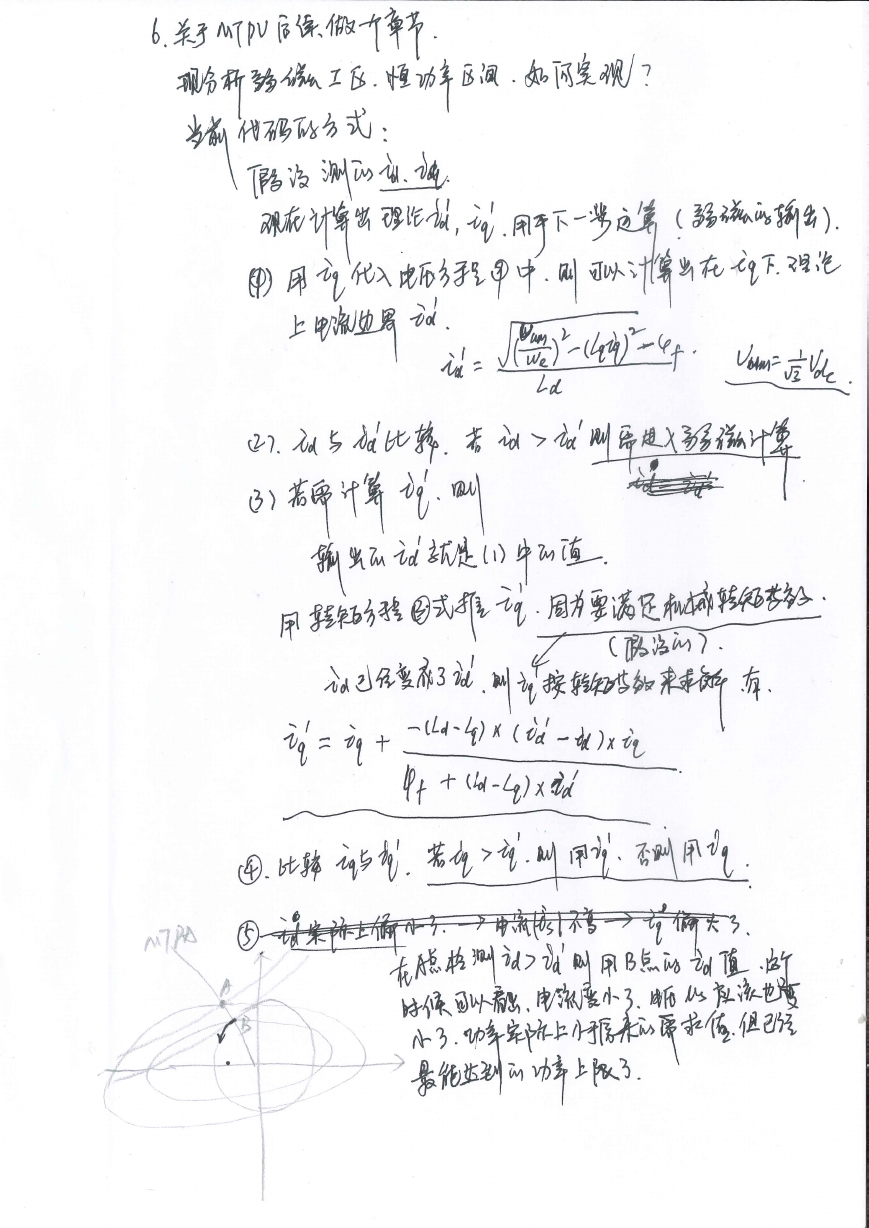 6. 关于MTPV后续做个章节.
现分析弱磁工区. 恒功率区间. 如何实现?
当前代码的方式:
假设测的id、iq.
现在计算出理论id', iq' 用于下一步运算(弱磁的输出).
(1) 用iq代入电压方程④中. 则可以计算出在iq下. 理论
上电流边界id'.
id' = (√((Uum/We)² - (Lq iq)²) - φf) / Ld .
Uum = 1/√3 Udc.
(2). id与id'比较. 若id > id' 则需进入弱磁计算
(3) 若需计算iq'. 则
输出的id'就是(1)中的值.
用转矩方程②式推iq'. 因为要满足机械转矩等效.
(假设的).
id已经变成了id'. 则iq'按转矩等效来求解. 有.
iq' = iq + (-(Ld-Lq)×(id'-id)×iq) / (φf + (Ld-Lq)×id') .
④. 比较iq与iq'. 若iq > iq'. 则用iq'. 否则用iq.
⑤ id实际上偏小了. → 电流|is|不高 → iq偏大了.
MTPA
A
B
在A点检测id>id' 则用B点的id值. 这个
时候可以看出. 电流变小了. 应该也变
小了. 功率实际上小于原来的需求值. 但已经
最能达到的功率上限了.